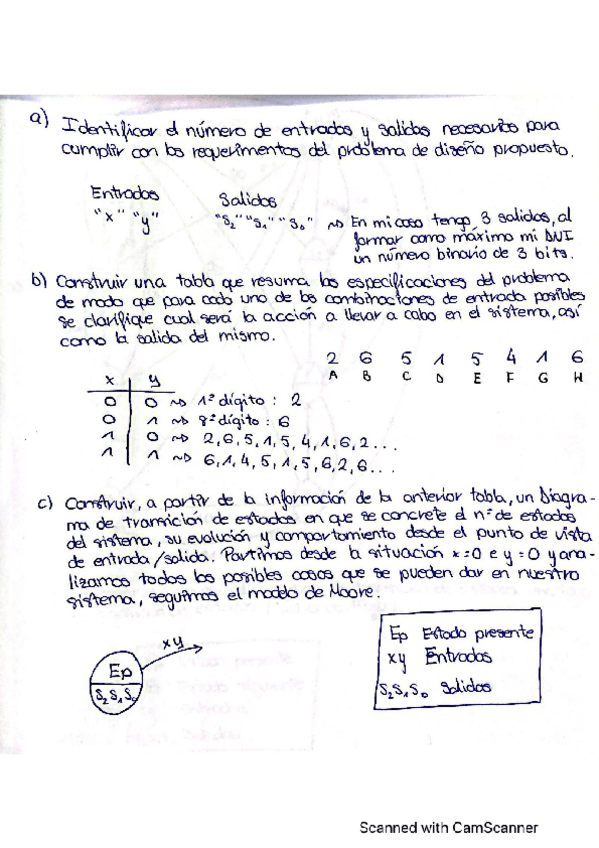 a) Identificar el número de entradas y salidas necesarias para
cumplir con los requerimientos del problema de diseño propuesto.
Entradas Salidas
"x" "y" "S2" "S1" "S0" ⇝ En mi caso tengo 3 salidas, al
formar como máximo mi DNI
un número binario de 3 bits.
b) Construir una tabla que resuma las especificaciones del problema
de modo que para cada una de las combinaciones de entrada posibles
se clarifique cual será la acción a llevar a cabo en el sistema, así
como la salida del mismo.
2 6 5 1 5 4 1 6
A B C D E F G H
x y
0 0 ⇝ 1º dígito : 2
0 1 ⇝ 8º dígito : 6
1 0 ⇝ 2,6,5,1,5,4,1,6,2...
1 1 ⇝ 6,1,4,5,1,5,6,2,6...
c) Construir, a partir de la información de la anterior tabla, un Diagra-
ma de transición de estados en que se concrete el nº de estados
del sistema, su evolución y comportamiento desde el punto de vista
de entrada/salida. Partimos desde la situación x=0 e y=0 y ana-
lizamos todos los posibles casos que se pueden dar en nuestro
sistema, seguimos el modelo de Moore.
xy
Ep
S2 S1 S0
Ep Estado presente
xy Entradas
S2 S1 S0 Salidas
Scanned with CamScanner